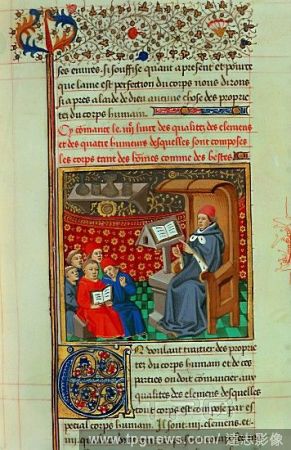 ses ennes. Si souffise quant a present et pource
que lame est perfection du corps nous dirons
si apres a laide de dieu aucune chose des proprie
tez du corps humain.
Cy cōmance le .iiij. livre des qualitez des elemens
et des quatre humeurs desquelles sont composez
les corps tant des hōmes comme des bestes.
En voulant traitier des proprie
tez du corps humain et de ces
parties on doit cōmancier aux
qualitez des elemens desquelles
tout corps est compose par es
pecial corps humain. Il sont .iiij. elemens et
www.tpgnews.com 達志影像